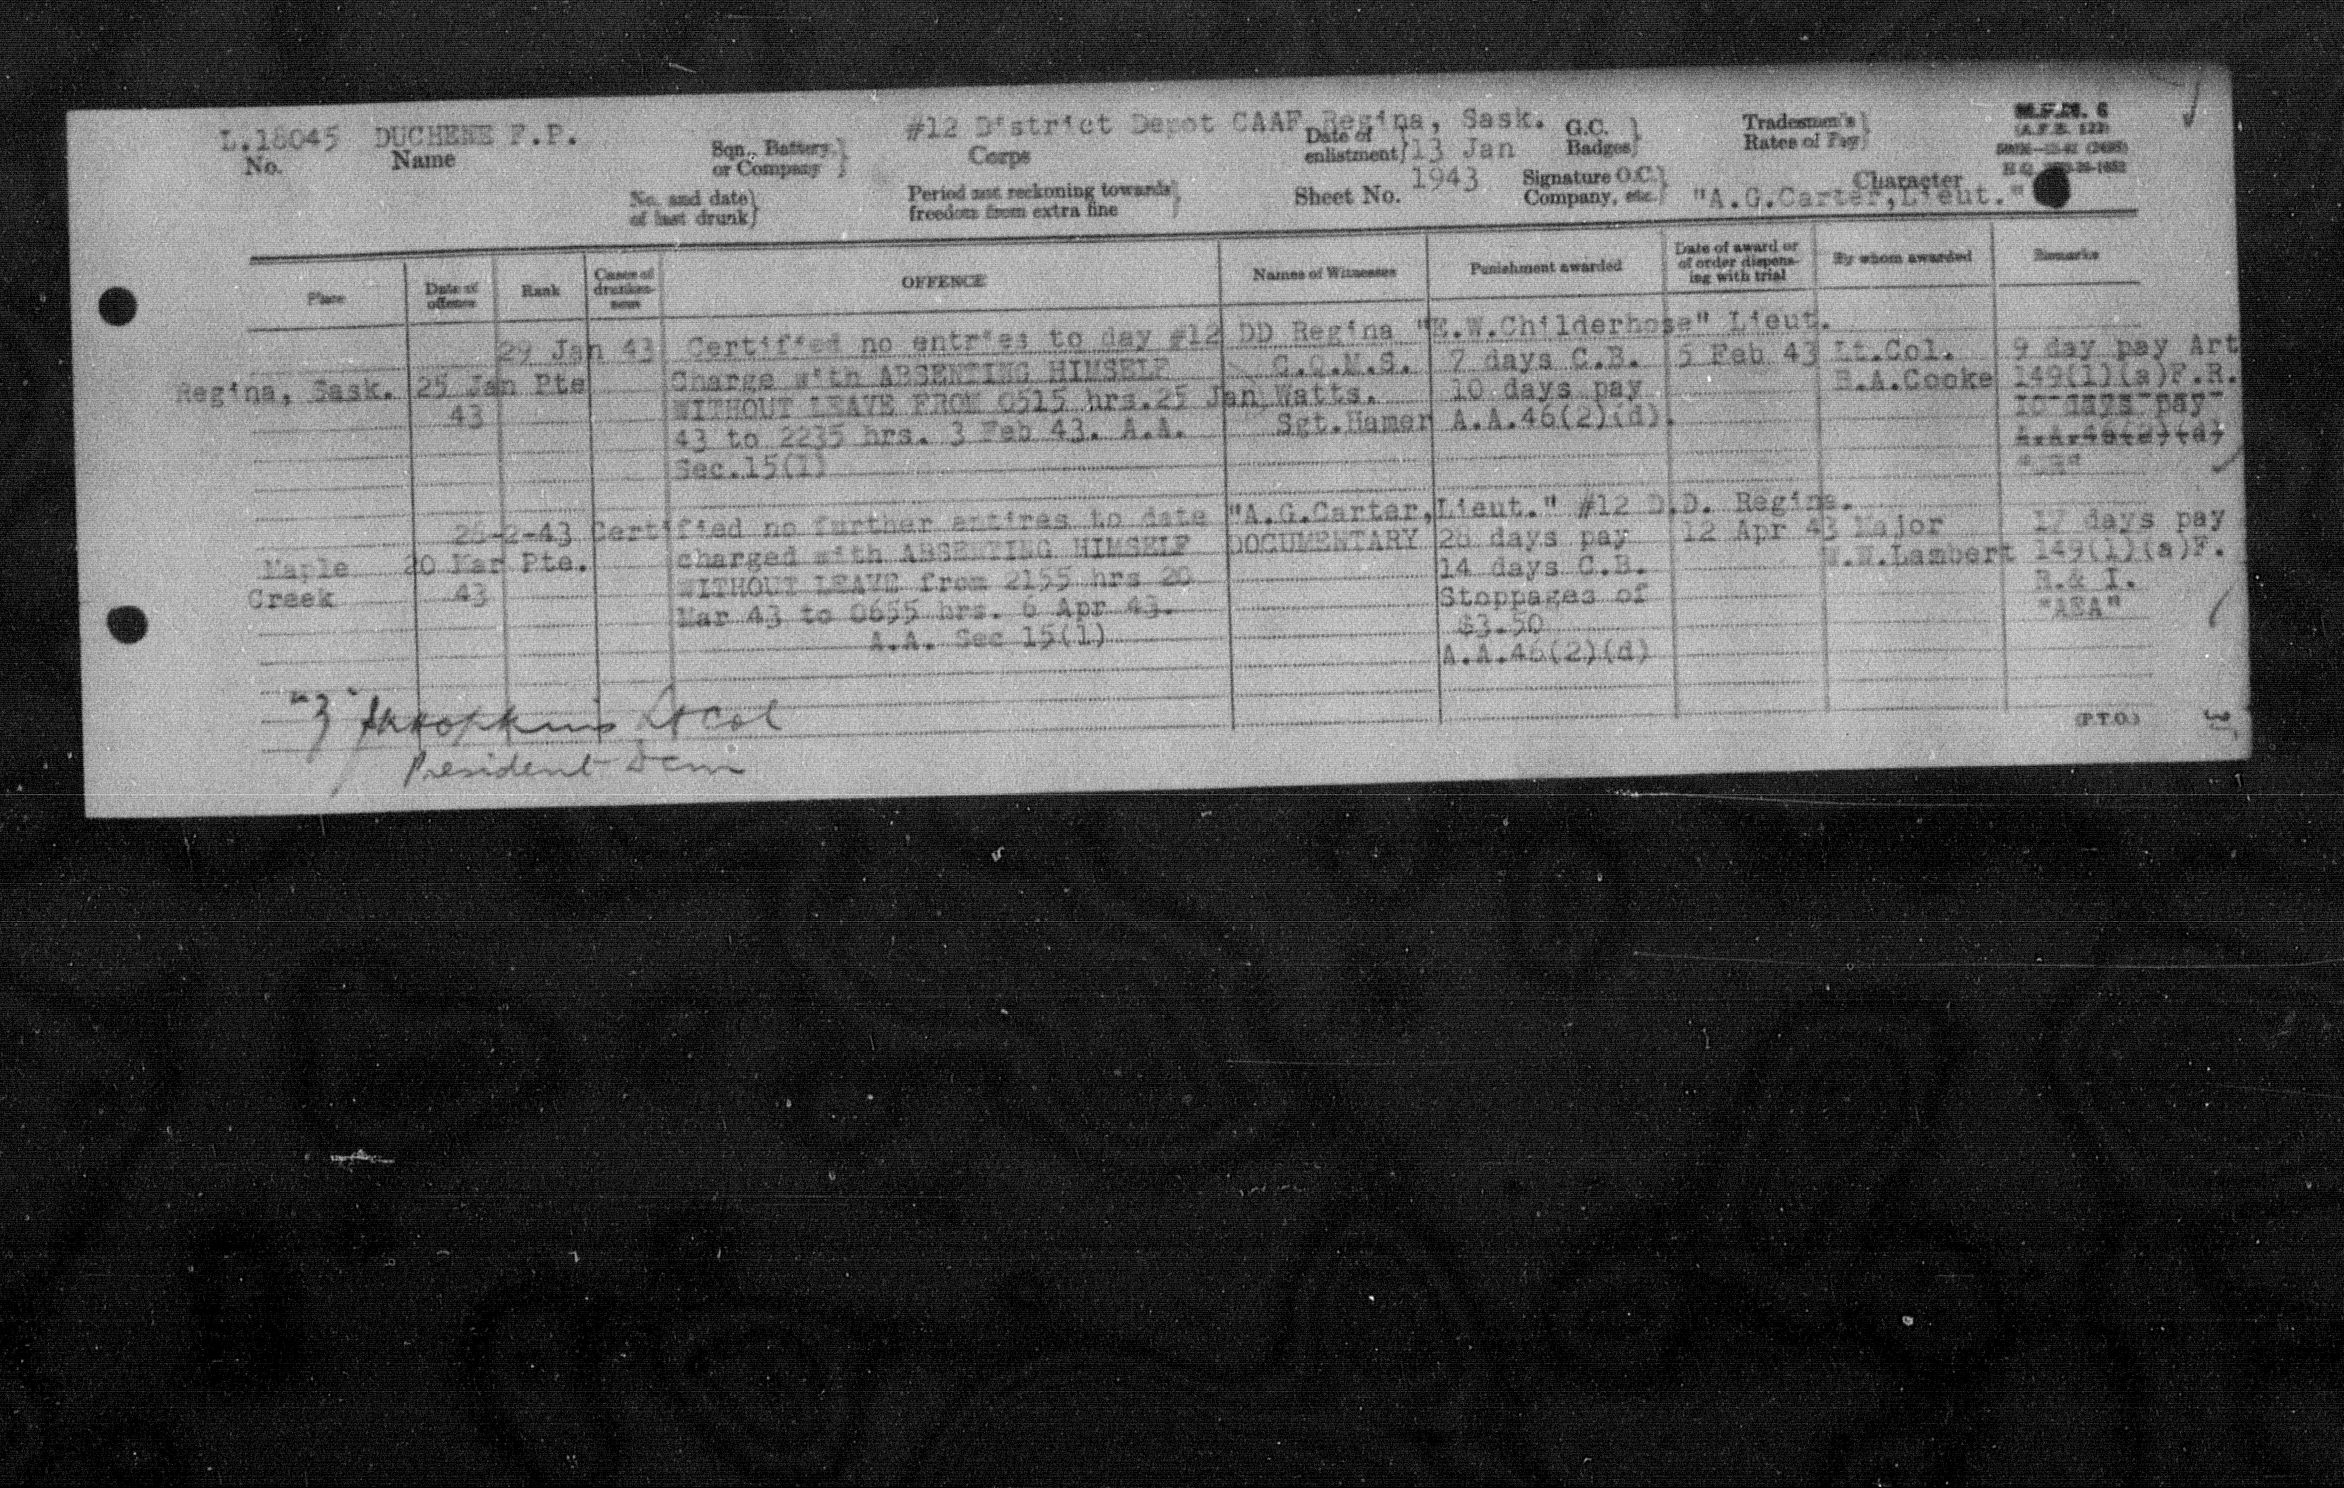 #12 District Depot CAAF Regina, Sask.
L.18045 DUCHENE F.P.
No. Name Sqn., Battery or Company Corps Date of enlistment 13 Jan 1943 G.C. Badges Tradesmen's Rates of Pay M.F.M. 6
No. and date of last drunk Period not reckoning towards freedom from extra fine Sheet No. Signature O.C. Company, etc. "A.G.Carter,Lieut." Character
Place Date of offence Rank Cases of drunkenness OFFENCE Names of Witnesses Punishment awarded Date of award or of order dispensing with trial By whom awarded Remarks
29 Jan 43 Certified no entries to day #12 DD Regina "E.W.Childerhose" Lieut.
Regina, Sask. 25 Jan Pte Charge with ABSENTING HIMSELF C.Q.M.S. 7 days C.B. 5 Feb 43 Lt.Col. 9 day pay Art
43 WITHOUT LEAVE FROM 0515 hrs.25 Jan Watts. 10 days pay Cooke 149(1)(a)F.R.
43 to 2235 hrs. 3 Feb 43. A.A. Sgt.Hamer A.A.46(2)(d). 10 days pay
Sec.15(1) A.A.46(2)(d)
26-2-43 Certified no further entires to date "A.G.Carter,Lieut." #12 D.D. Regina.
Maple 20 Mar Pte. charged with ABSENTING HIMSELF DOCUMENTARY 28 days pay 12 Apr 43 Major 17 days pay
Creek 43 WITHOUT LEAVE from 2155 hrs 20 14 days C.B. W.W.Lambert 149(1)(a)F.
Mar 43 to 0655 hrs. 6 Apr 43. Stoppages of R.& I.
A.A. Sec 15(1) $3.50 "AEA"
A.A.46(2)(d)
Hopkins Lt Col
President Dcm
(P.T.O.)